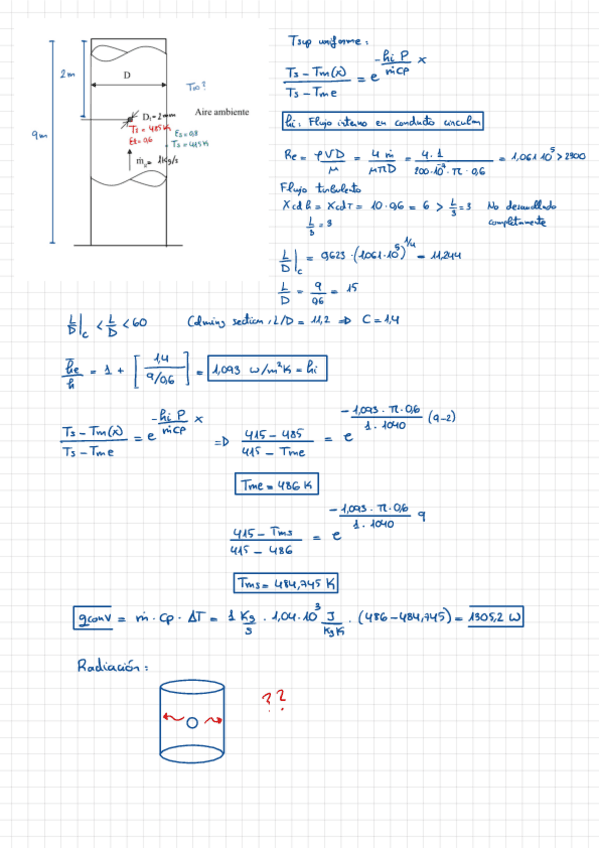 2m
D
T∞?
D₁ = 2mm
Aire ambiente
Ts = 485K
ε₁ = 0,6
εs = 0,8
Ts = 415K
9m
ṁg = 1Kg/s
Tsup uniforme:
Ts - Tm(x) / Ts - Tme = e^(-hi P / ṁcp x)
hi: Flujo interno en conducto circular
Re = ρVD / μ = 4 ṁ / μπD = 4.1 / 200·10⁻⁴·π·0,6 = 1,061·10⁵ > 2300
Flujo turbulento
Xcdh = XcdT = 10·0,6 = 6 > L/3 = 3 No desarrollado
L/D = 3 completamente
L/D|c = 0,623·(1,061·10⁵)^1/4 = 11,244
L/D = 9/0,6 = 15
L/D|c < L/D < 60 Calming section, L/D = 11,2 ⇒ C = 1,4
h̄e/h = 1 + [1,4 / 9/0,6] = 1,093 w/m²K = hi
Ts - Tm(x) / Ts - Tme = e^(-hi P / ṁcp x) ⇒ 415 - 485 / 415 - Tme = e^(-1,093·π·0,6 / 1·1040 (9-2))
Tme = 486 K
415 - Tms / 415 - 486 = e^(-1,093·π·0,6 / 1·1040 9)
Tms = 484,745 K
qconv = ṁ·cp·ΔT = 1 Kg/s · 1,04·10³ J/KgK · (486 - 484,745) = 1305,2 W
Radiación:
??